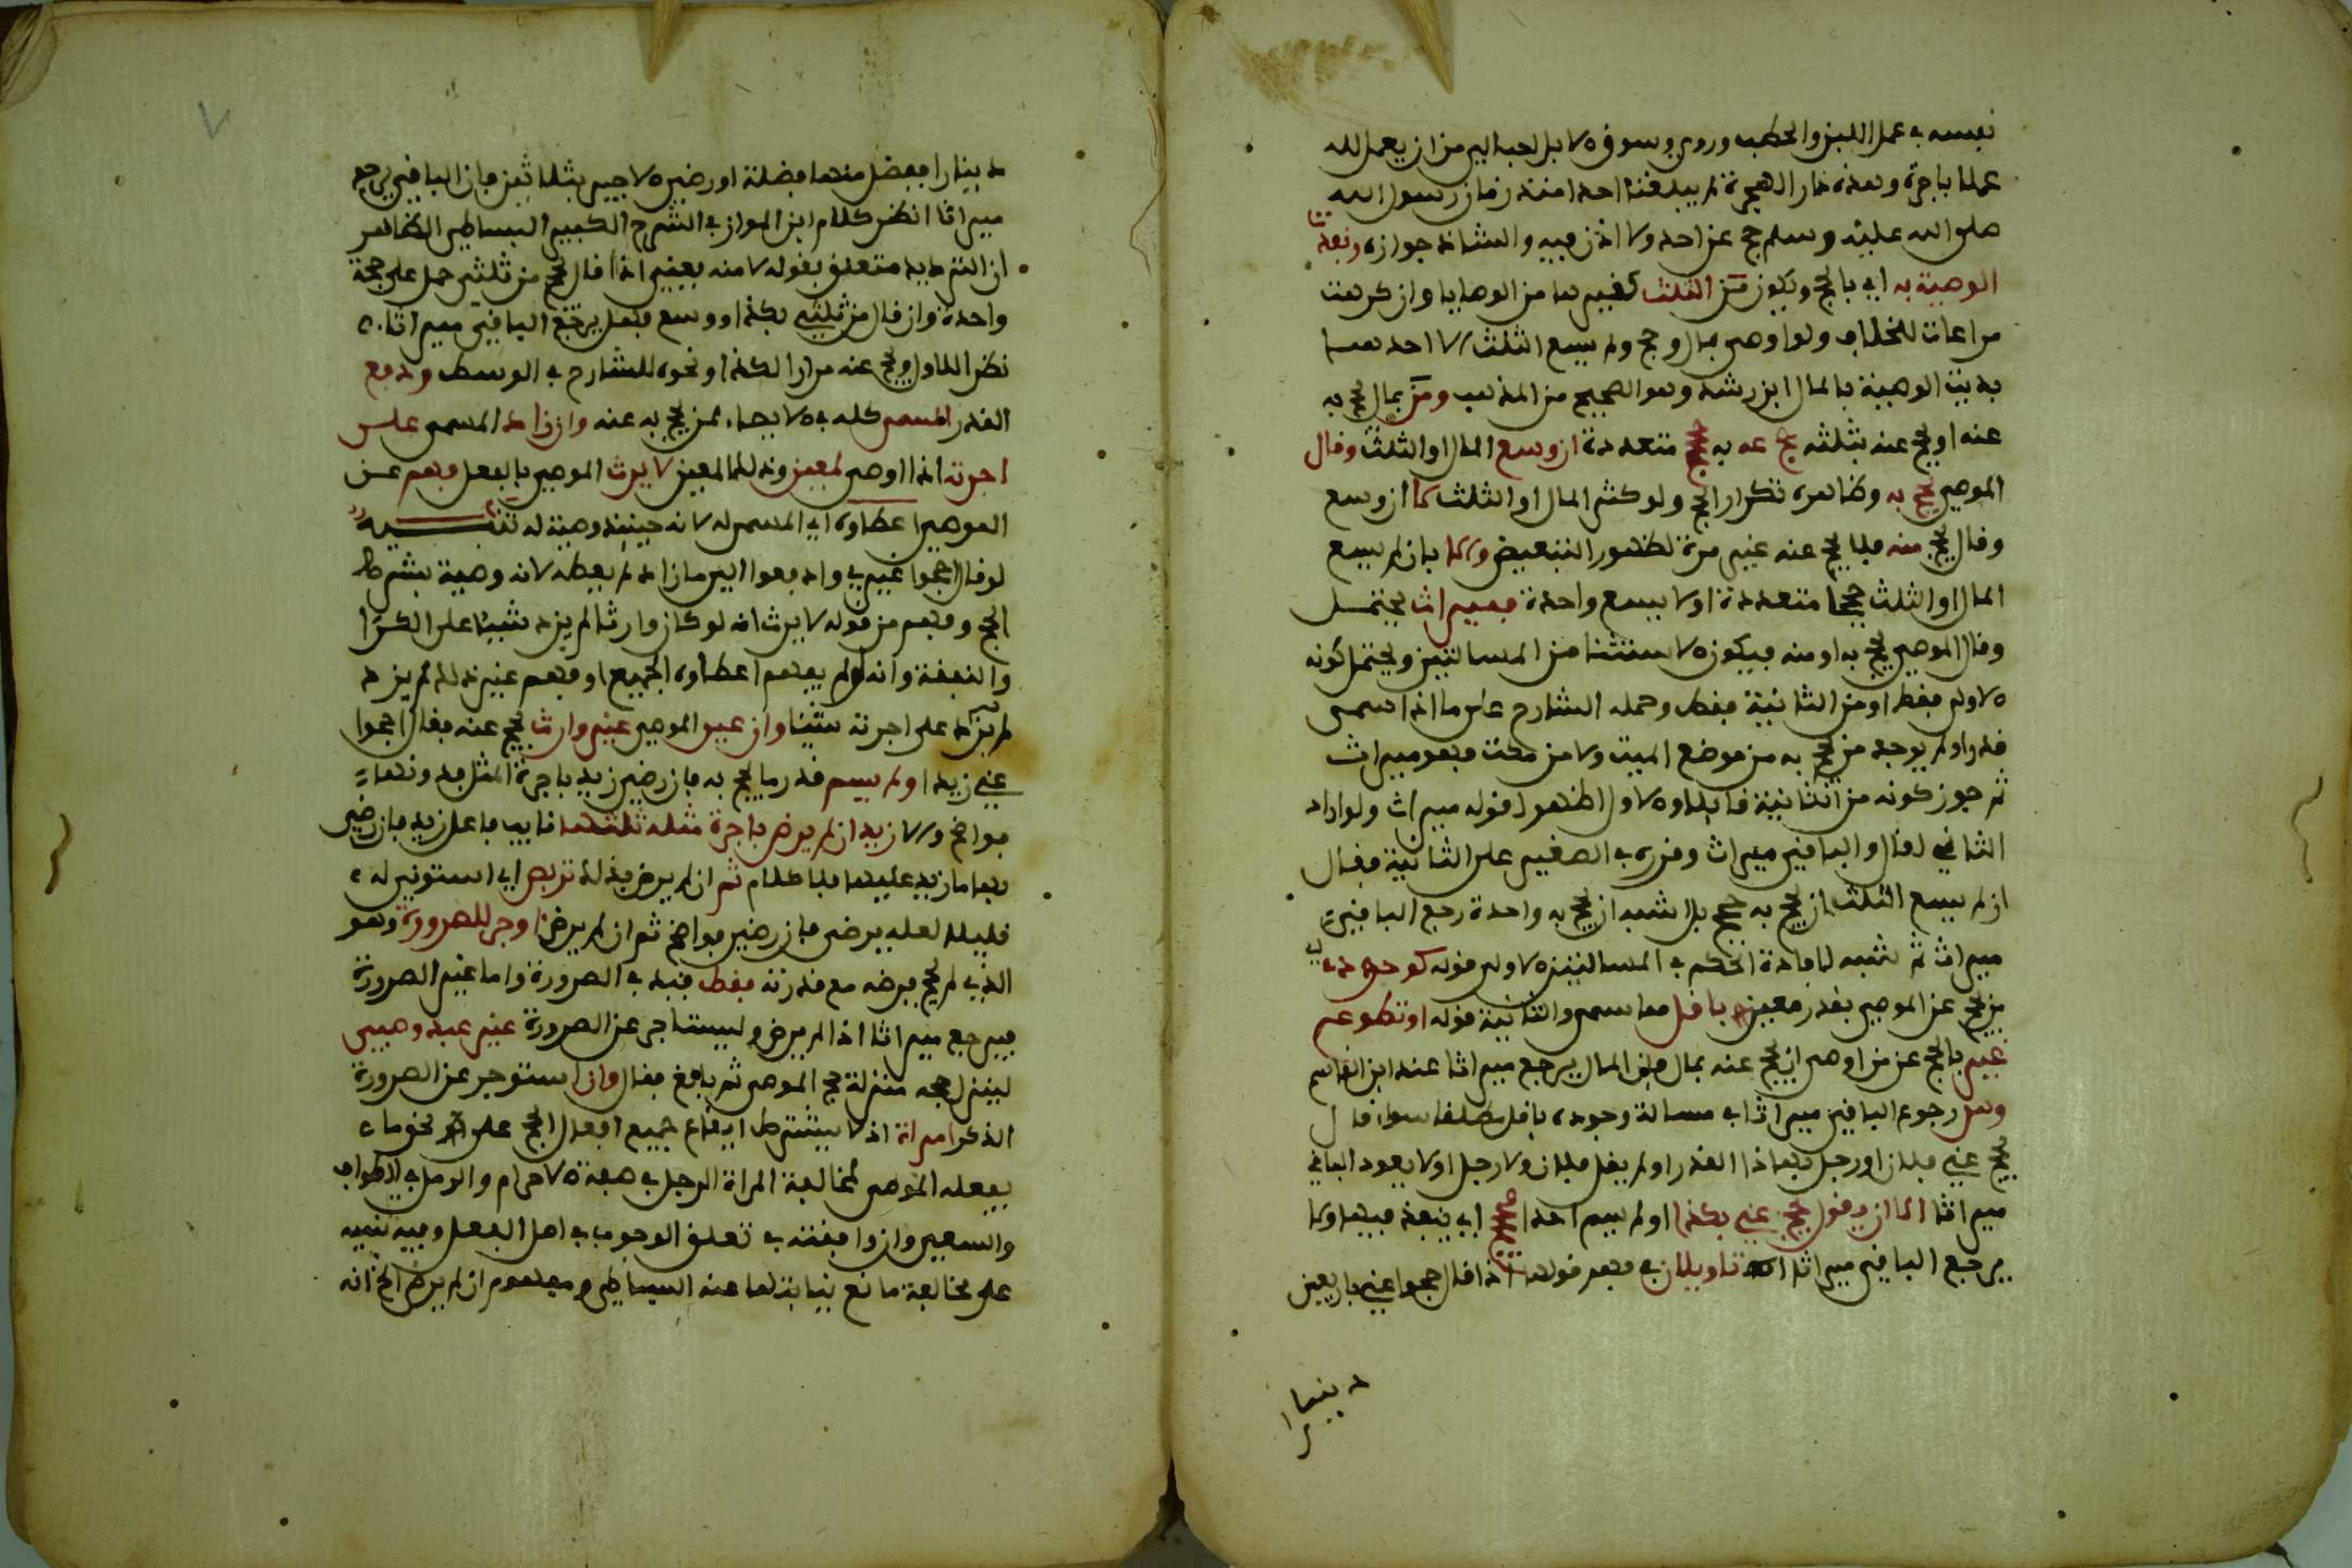 نفسه في عمل اللبن والحطب وروى وسوق الابل احب الي من ان يعمل لله
عملا باجرة وهذه دار الهجرة لم يبلغنا احدا منذ زمان رسول الله
صلى الله عليه وسلم حج عن احد ولا اذن فيه والشاذ جوازه ونفذت
الوصية به اي بالحج ويكون من الثلث كغيرها من الوصايا وان كرهت
مراعات للخلاف ولو اوصى بمال وحج ولم يسع الثلث الا احدهما
بديت الوصية بالمال ابن رشد وهو الصحيح من المذهب ومن بمال يحج به
عنه او يحج عنه بثلثه حج عنه به حجج متعددة ان وسع المال او الثلث وقال
الموصي يحج به وظاهره تكرار الحج ولو كثر المال او الثلث كما ان وسع
وقال يحج منه فلا يحج عنه غير مرة لظهور التبعيض والا بان لم يسع
المال او الثلث حججا متعددة او لا يسع واحدة فميراث يحتمل
وقال الموصي يحج به او منه فيكون الاستثنا من المسالتين ويحتمل كونه
الاولى فقط او من الثانية فقط وحمله الشارح على ما اذا سمى
قدرا ولم يوجد من يحج به من موضع الميت ولا من مكة فهو ميراث
ثم جوز كونه من الثانية قايلا والاول اظهر لقوله ميراث ولو اراد
الثاني لقال والباقي ميراث وقرره في الصغير على الثانية فقال
ان لم يسع الثلث ان يحج به حجج بل اشبه ان يحج به واحدة رجع الباقي
ميراث ثم شبه لافادة الحكم في المسالتين الاولى قوله كوجوده
من يحج عن الموصي بقدر معين باقل مما سمى والثانية قوله او تطوع
غير بالحج عن من اوصى ان يحج عنه بمال فان المال يرجع ميراثا عند ابن القاسم
وهل رجوع الباقي ميراثا في مسالة وجوده باقل مطلقا سوا قال
يحج عني فلان او رجل بهذا القدر او لم يقل فلان ولا رجل او لا يعود الباقي
ميراثا الا ان يقول حج عني بكذا او لم يسم احدا فحجج اي ينفذ فيها ولا
يرجع الباقي ميراثا تاويلان في فهم قولها اذا قال حجوا عني باربعين
دينارا
دينارا ففضل منها فضلة او رضي الاجير بثلاثين فان الباقي يرجع
ميراثا انظر كلام ابن المواز في الشرح الكبير البساطي الظاهر
ان الترديد متعلق بقوله لا منه يعني اذا قال يحج من ثلثي حمل على حجة
واحدة وان قال من ثلثي بكذا ووسع فهل يرجع الباقي ميراثا
نظر اللاول ويحج عنه مرارا لكذا ونحوه للشارح في الوسط ودفع
القدر المسمى كله في الايصاء لمن يحج به عنه وان زاد المسمى على
اجرته اذا اوصى لمعين وذلك المعين لا يرث الموصي بالفعل وفهم عن
الموصي اعطاوه اي المسمى له لانه حينئذ وصية له تنبيه
لو قال احجوا غيري وادفعوا اليه ما زاد لم يعطه لانه وصية بشرط
الحج وفهم من قوله لا يرث انه لو كان وارثا لم يزد شيئا على الكرا
والنفقة وانه لو لم يفهم اعطاوه الجميع او فهم غير ذلك لم يزد
لم يزد على اجرته شيئا وان عين الموصي غير وارث يحج عنه فقال احجوا
عني زيدا ولم يسم قدر ما يحج به فان رضي زيد باجرة المثل فدونها
فواضح والا زيد ان لم يرض باجرة مثله ثلثها نايب فاعل زيد فان رضي
بها ما زيد عليها فلا كلام ثم ان لم يرض بذلك تربص اي استوني له
قليلا لعله يرضى فان رضي فواضح ثم ان لم يرض اوجر للصرورة وهو
الذي لم يحج فرضه مع قدرته فقط قيد في الصرورة واما غير الصرورة
فيرجع ميراثا اذا لم يرض وليستاجر عن الصرورة غير عبد وصبي
لينزل حجه منزلة حج الموصي ثم بالغ فقال وان استوجر عن الصرورة
الذكر امراة اذ لا يشترط ايقاع جميع افعال الحج على نحو ما
يفعله الموصي لمخالفة المراة الرجل في صفة الاحرام والرمل في الطواف
والسعي وان وافقته في تعلق الوجوب في اصل الفعل وفيه تنبيه
على مخالفة مانع نيابتها عند البساطي ومفهوم ان لم يرض الخ انه